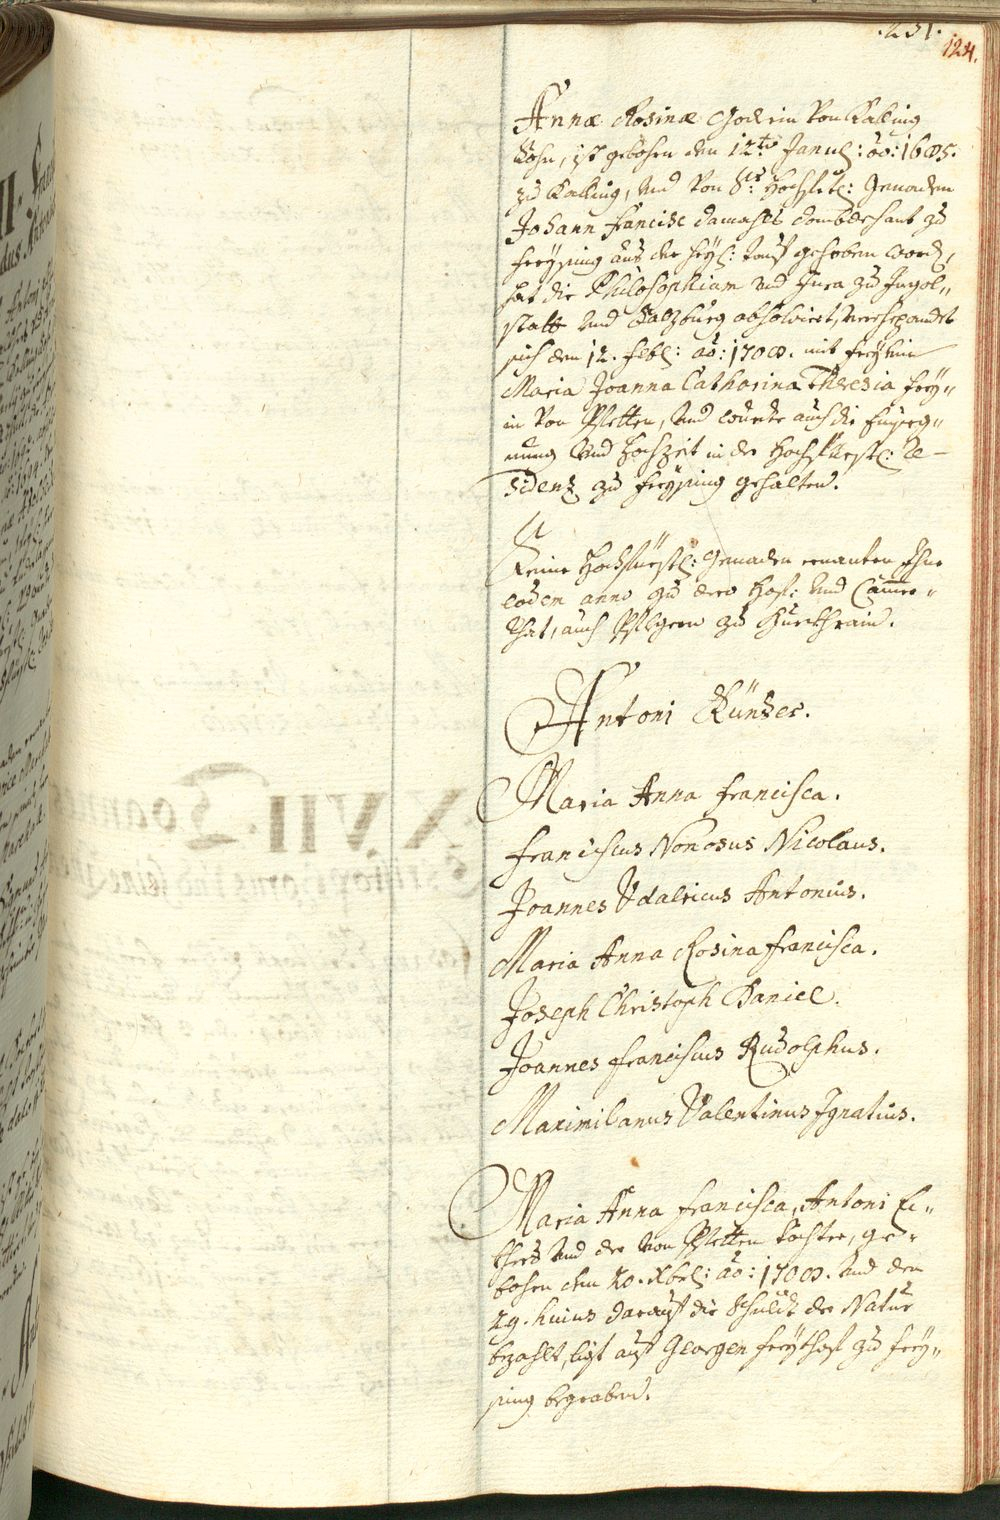 .231.
124.
Annæ Rosinæ Godrin Von Kalling
Sohn, ist gebohren den 12.ten Janul: ao: 1685.
zu Kalling, und von Sr: Hochfrtl: Genaden
Johann Francisc damahls Dombdechant zu
Freysing aus der heyl: Tauf gehoben word,
hat die Philosophiam und Jura zu Ingol„
statt und Salzburg absolvirt, verehepandet
sich den 12. Febl: ao: 1708. mit Freyhin
Maria Joanna Catharina Theresia Frey„
in von Pletten, und wurde auch die Einseg„
nung und Hochzeit in der Hochfürstl: Re-
sidenz zu Freysing gehalten.
Seine Hochfürstl: Genaden ernanten Ihne
eodem anno zu dero Hof: und Cammer„
Rhat, auch Pflegern zu Burckhrain.
Antoni Künder.
Maria Anna Francisca.
Franciscus Nonosus Nicolaus.
Joannes Udalricus Antonius.
Maria Anna Rosina Francisca.
Joseph Christoph Daniel.
Joannes Franciscus Rudolphus.
Maximilianus Valentinus Ignatius.
Maria Anna Francisca, Antoni Ec„
khers und der von Pletten Tochter, ge„
bohren den 20. Xbrl: ao: 1708. und den
29. huius darauf die Schuldt der Natur
bezahlt, ligt auf Georgen Freythof zu Frey„
sing begraben.